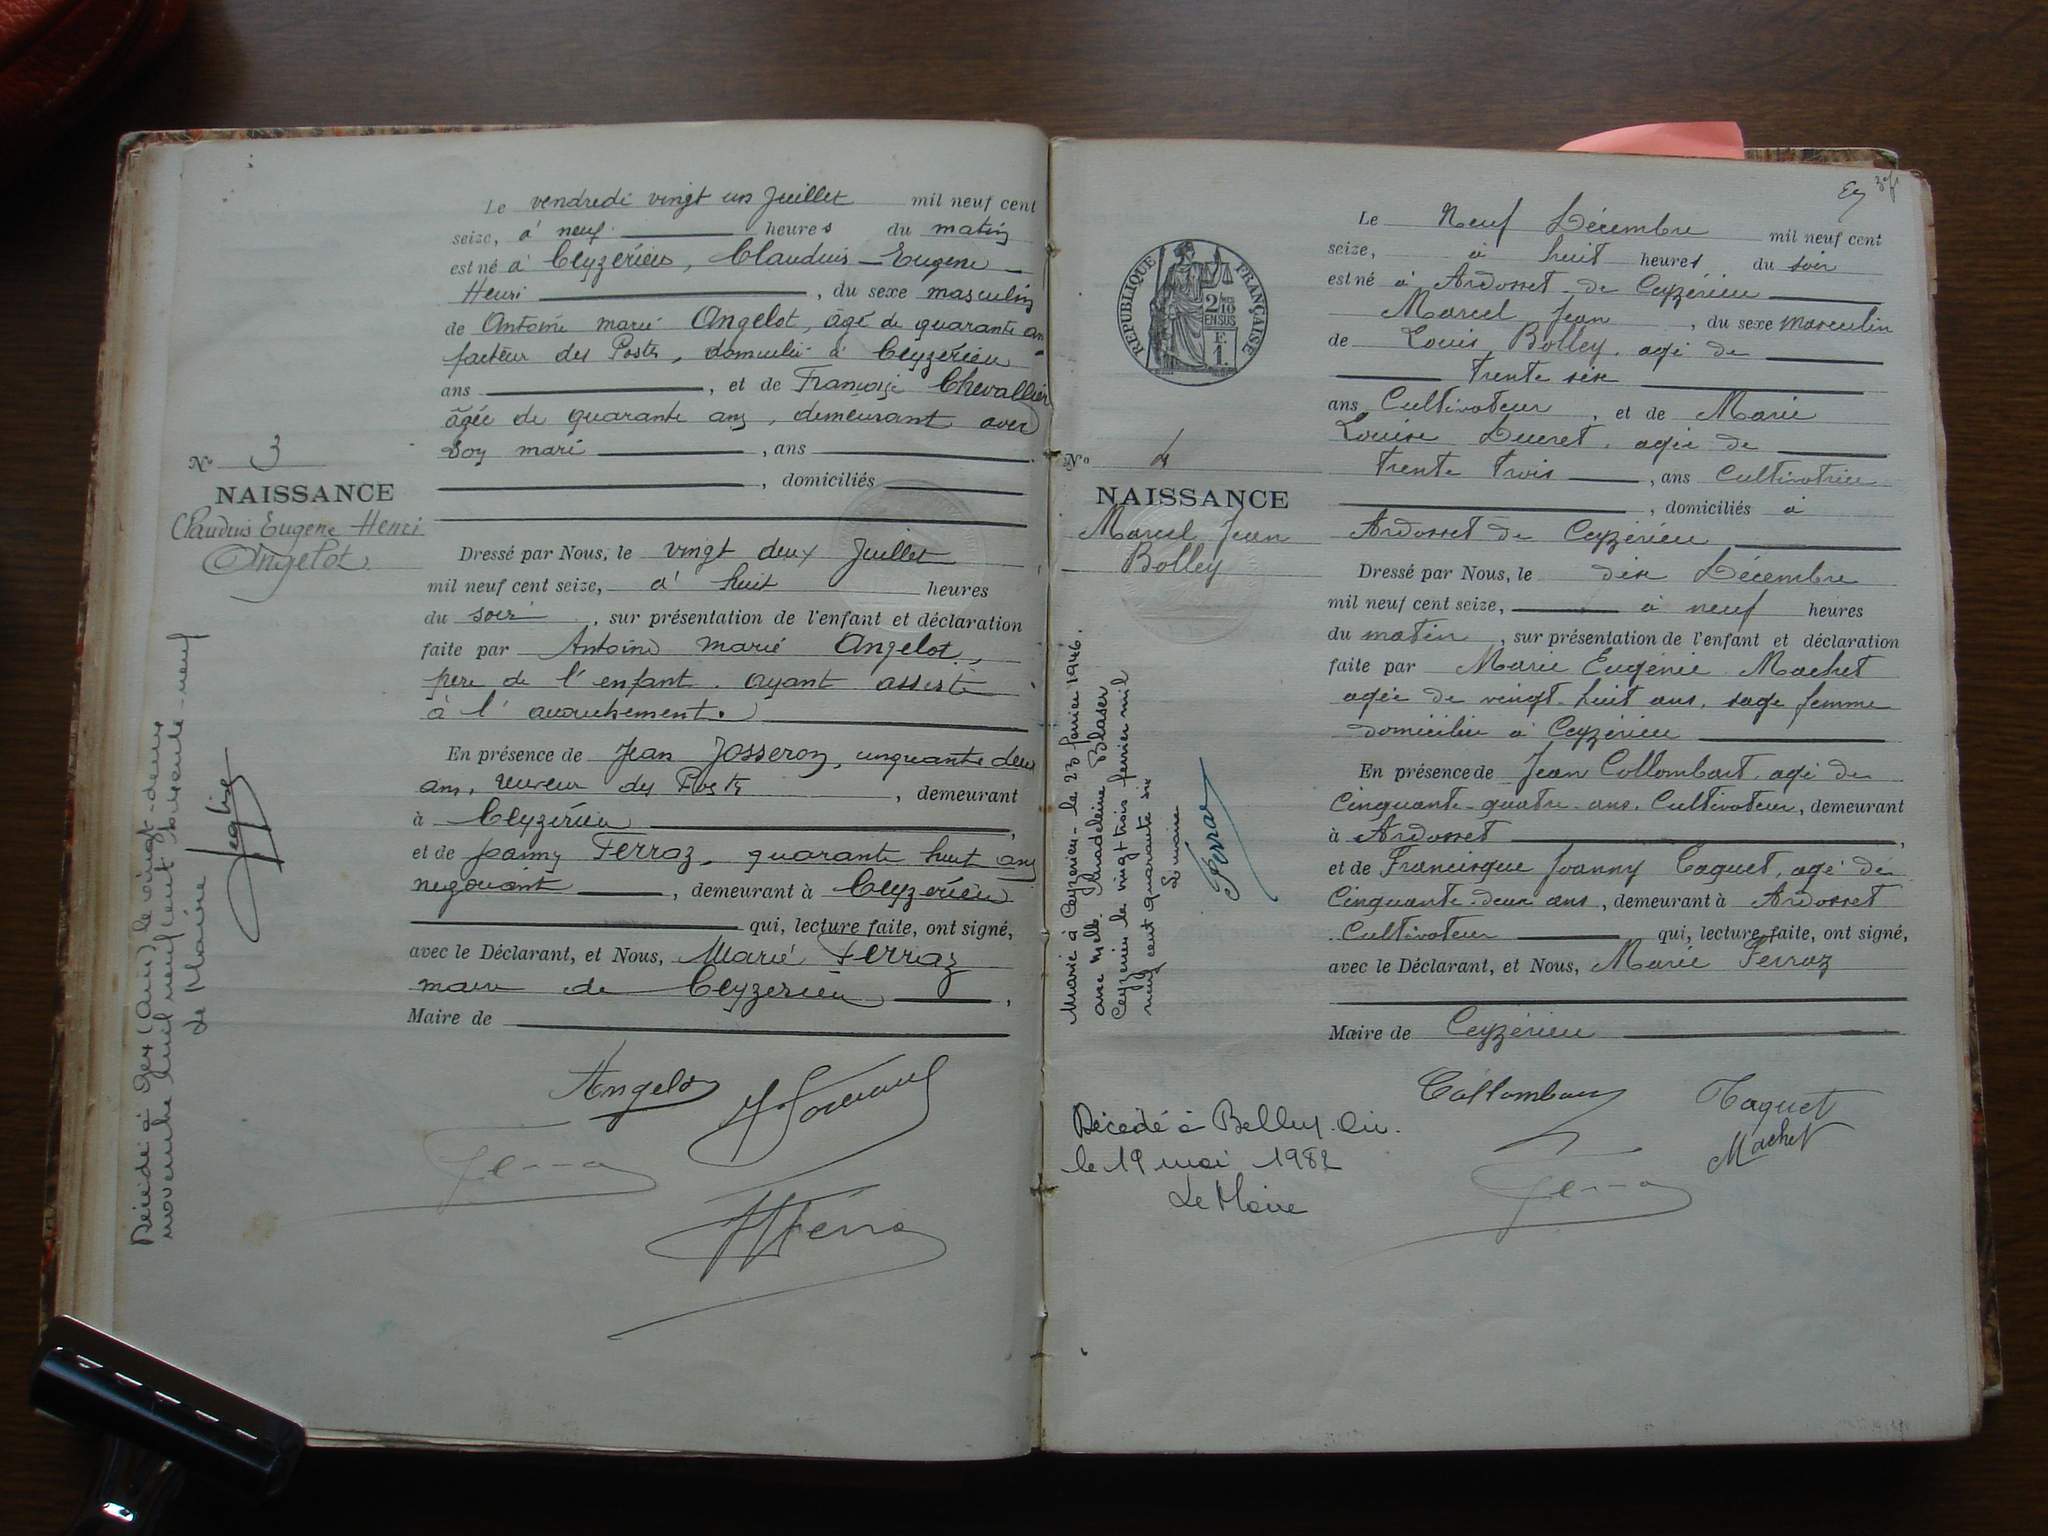 Le vendredi vingt un Juillet mil neuf cent
seize, à neuf heures du matin
est né à Ceyzérieu, Claudius - Eugene
Henri , du sexe masculin
de Antoine marie Angelot, âgé de quarante an
facteur des Postes, domicilié à Ceyzérieu
ans , et de Françoise Chevallier
âgée de quarante ans, demeurant avec
son mari , ans
, domiciliés
No 3
NAISSANCE
Claudius Eugene Henri
Angelot
Dressé par Nous, le vingt deux Juillet
mil neuf cent seize, à huit heures
du soir , sur présentation de l'enfant et déclaration
faite par Antoine marie Angelot,
père de l'enfant. ayant assisté
à l'accouchement.
En présence de Jean Josseron, cinquante deux
ans, receveur des Postes , demeurant
à Ceyzérieu ,
et de Joanny Ferraz, quarante huit ans
negociant , demeurant à Ceyzérieu
qui, lecture faite, ont signé,
avec le Déclarant, et Nous, Marie Ferraz
maire de Ceyzerieu ,
Maire de
Angelot
Décédé à Gex (Ain) le vingt-deux
novembre mil neuf cent soixante-neuf
Le Maire
Le Neuf Décembre mil neuf cent
seize, à huit heures du soir
est né à Ardosset de Ceyzérieu
Marcel Jean , du sexe masculin
de Louis Bolley, agé de
trente six
ans Cultivateur , et de Marie
Louise Ducret, agée de
trente trois , ans Cultivatrice
, domiciliés à
Ardosset de Ceyzérieu
RÉPUBLIQUE FRANÇAISE
2/10
EN SUS
F.
1.
No 4
NAISSANCE
Marcel Jean
Bolley
Dressé par Nous, le dix Décembre
mil neuf cent seize, à neuf heures
du matin , sur présentation de l'enfant et déclaration
faite par Marie Eugénie Machet
agée de vingt-huit ans, sage femme
domiciliée à Ceyzérieu
En présence de Jean Collombart, agé de
Cinquante-quatre ans, Cultivateur, demeurant
à Ardosset ,
et de Francisque Joanny Taquet, agé de
Cinquante-deux ans , demeurant à Ardosset
Cultivateur qui, lecture faite, ont signé,
avec le Déclarant, et Nous, Marie Ferraz
Maire de Ceyzérieu
Collombart
Taquet
Machet
Marié à Ceyzerieu - le 23 fevrier 1946.
avec Melle Madeleine Blaser
Ceyzerieu le vingt trois fevrier mil
neuf cent quarante six
Le maire
Ferraz
Décédé à Belley. Ain.
le 19 mai 1982
Le Maire